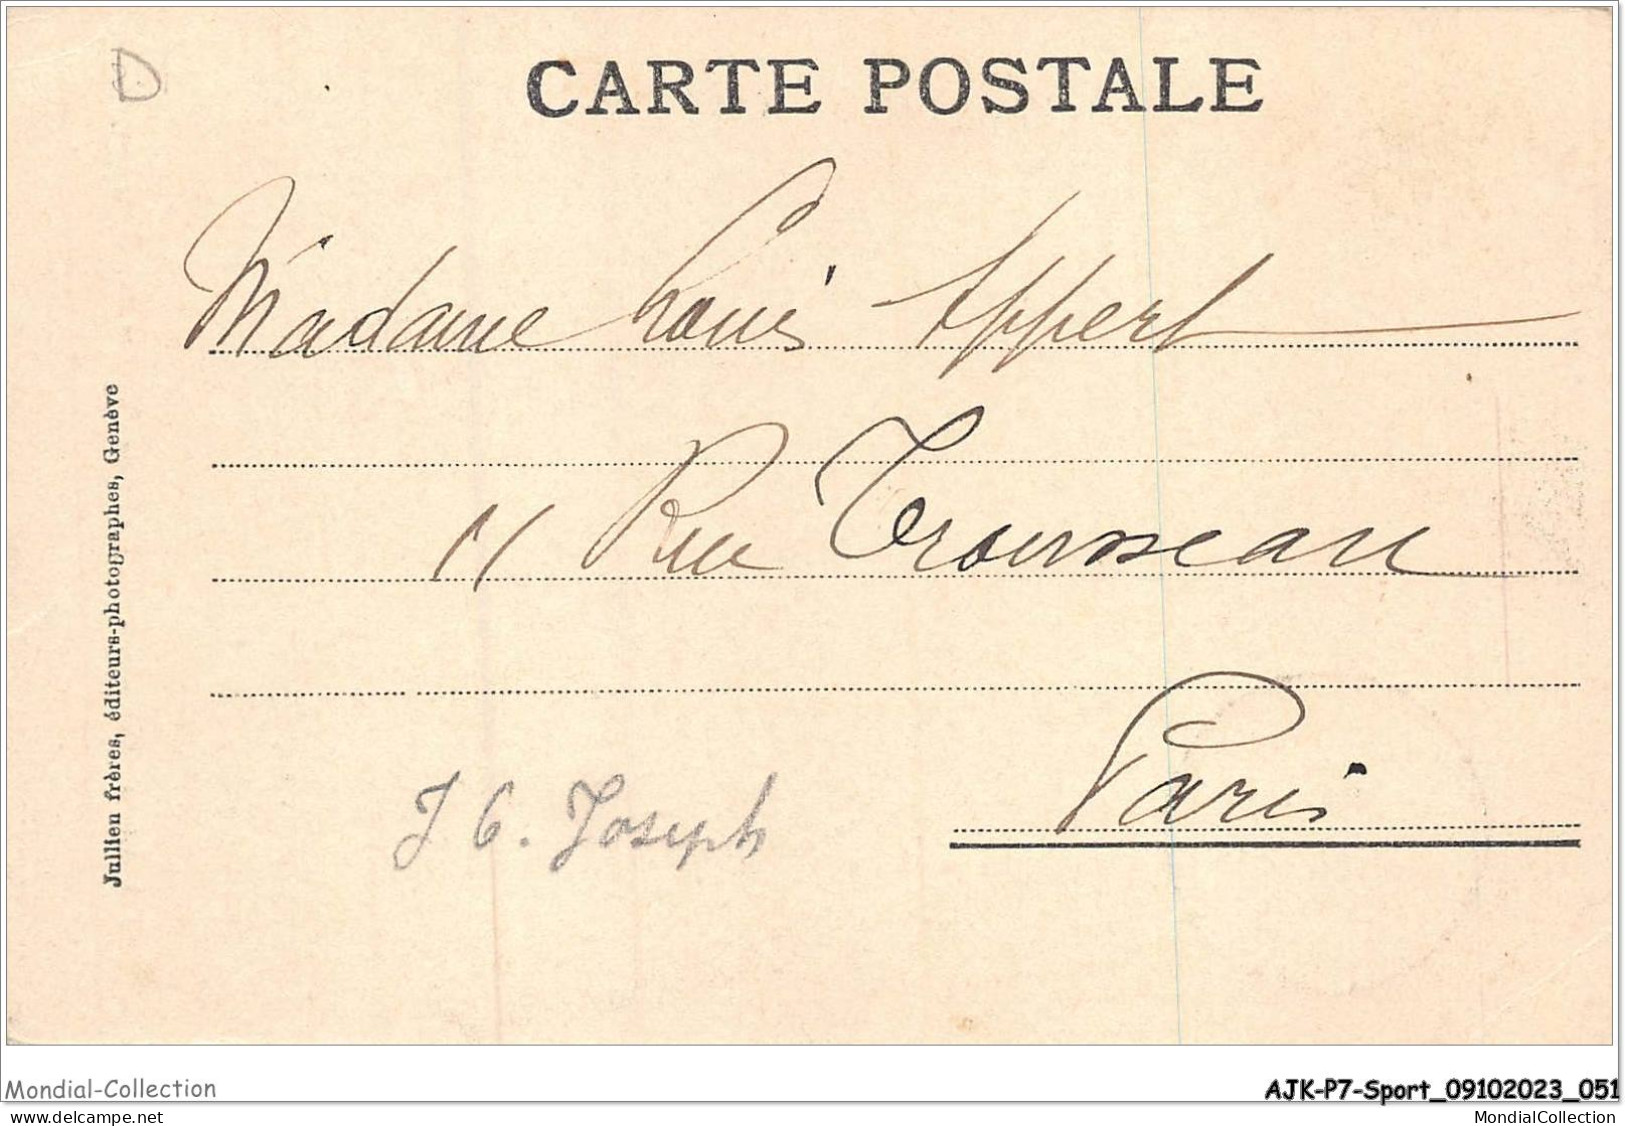 D
CARTE POSTALE
Madame Louis Appert
11 Rue Trousseau
Paris
J C. Joseph
Jullien frères, éditeurs-photographes, Genève
Mondial-Collection
AJK-P7-Sport_09102023_051
www.delcampe.net
MondialCollection